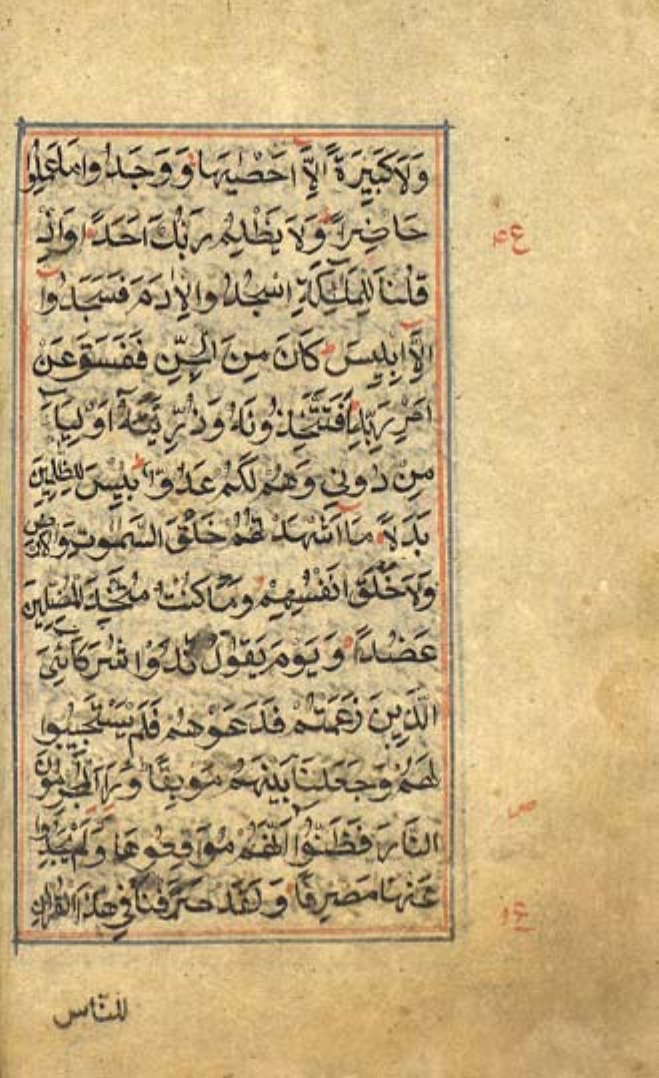 وَلَا كَبِيرَةً اِلَّا اَحْصٰيهَا وَوَجَدُوا مَا عَمِلُوا
حَاضِرًا وَلَا يَظْلِمُ رَبُّكَ اَحَدًا وَاِذْ
ع
قُلْنَا لِلْمَلٰٓئِكَةِ اسْجُدُوا لِاٰدَمَ فَسَجَدُوا
اِلَّا اِبْلِيسَ كَانَ مِنَ الْجِنِّ فَفَسَقَ عَنْ
اَمْرِ رَبِّهِ اَفَتَتَّخِذُونَهُ وَذُرِّيَّتَهُ اَوْلِيَاءَ
مِنْ دُونِي وَهُمْ لَكُمْ عَدُوٌّ بِئْسَ لِلظّٰلِمِينَ
بَدَلًا مَا اَشْهَدْتُهُمْ خَلْقَ السَّمٰوٰتِ وَالْاَرْضِ
وَلَا خَلْقَ اَنْفُسِهِمْ وَمَا كُنْتُ مُتَّخِذَ الْمُضِلِّينَ
عَضُدًا وَيَوْمَ يَقُولُ نَادُوا شُرَكَائِيَ
الَّذِينَ زَعَمْتُمْ فَدَعَوْهُمْ فَلَمْ يَسْتَجِيبُوا
لَهُمْ وَجَعَلْنَا بَيْنَهُمْ مَوْبِقًا وَرَاَ الْمُجْرِمُونَ
النَّارَ فَظَنُّوا اَنَّهُمْ مُوَاقِعُوهَا وَلَمْ يَجِدُوا
عَنْهَا مَصْرِفًا وَلَقَدْ صَرَّفْنَا فِي هٰذَا الْقُرْاٰنِ
للنّاس